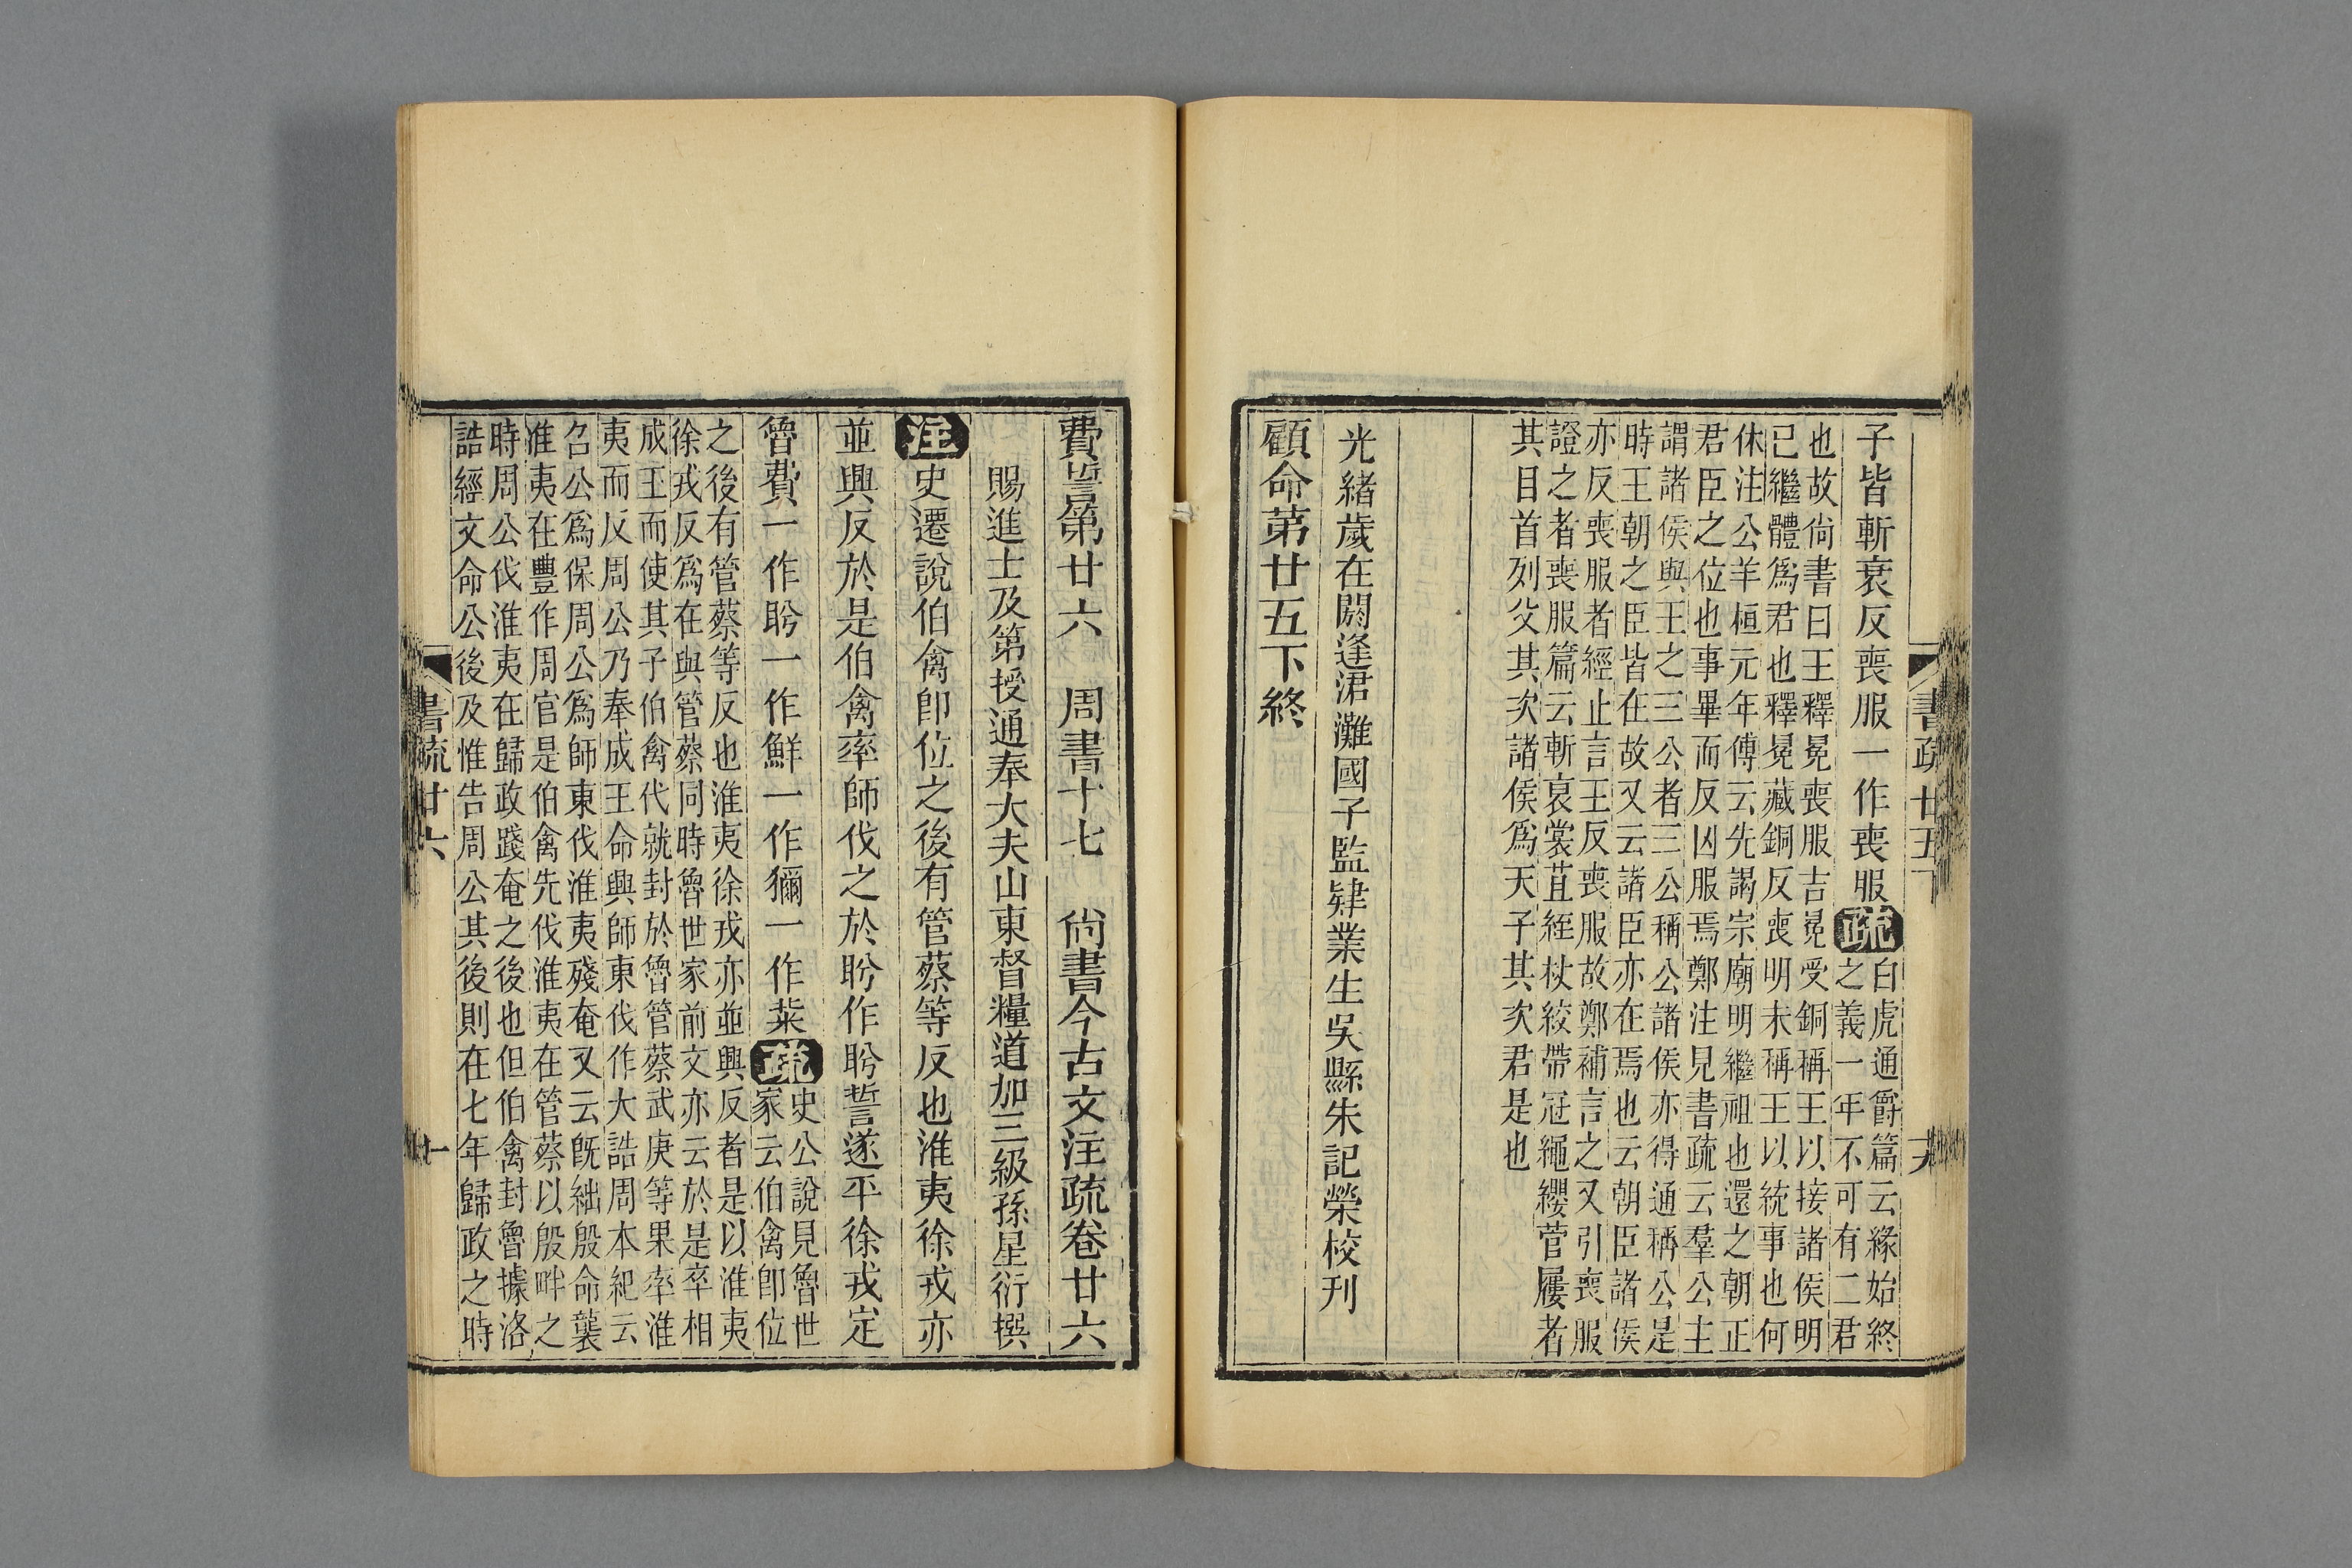 書疏廿五下
子皆斬衰反喪服一作喪服疏白虎通爵篇云緣始終
之義一年不可有二君
也故尙書曰王釋冕喪服吉冕受銅稱王以接諸侯明
已繼體爲君也釋冕藏銅反喪明未稱王以統事也何
休注公羊桓元年傳云先謁宗廟明繼祖也還之朝正
君臣之位也事畢而反凶服焉鄭注見書疏云羣公主
謂諸侯與王之三公者三公稱公諸侯亦得通稱公是
時王朝之臣皆在故又云諸臣亦在焉也云朝臣諸侯
亦反喪服者經止言王反喪服故鄭補言之又引喪服
證之者喪服篇云斬衰裳苴絰杖絞帶冠繩纓菅屨者
其目首列父其次諸侯爲天子其次君是也
光緖歲在閼逢涒灘國子監肄業生吳縣朱記榮校刊
顧命第廿五下終
費誓第廿六 周書十七 尙書今古文注疏卷廿六
賜進士及第授通奉大夫山東督糧道加三級孫星衍撰
注史遷說伯禽卽位之後有管蔡等反也淮夷徐戎亦
並興反於是伯禽率師伐之於肹作肹誓遂平徐戎定
魯費一作肹一作鮮一作獮一作棐疏史公說見魯世
家云伯禽卽位
之後有管蔡等反也淮夷徐戎亦並興反者是以淮夷
徐戎反爲在與管蔡同時魯世家前文亦云於是卒相
成王而使其子伯禽代就封於魯管蔡武庚等果率淮
夷而反周公乃奉成王命興師東伐作大誥周本紀云
召公爲保周公爲師東伐淮夷殘奄又云旣絀殷命襲
淮夷在豐作周官是伯禽先伐淮夷在管蔡以殷畔之
時周公伐淮夷在歸政踐奄之後也但伯禽封魯據洛
誥經文命公後及惟告周公其後則在七年歸政之時
書疏廿六
一